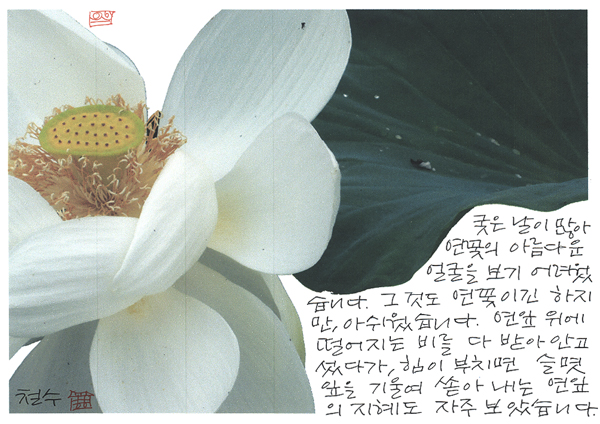 궂은 날이 많아
연꽃의 아름다운
얼굴을 보기 어려웠
습니다. 그것도 연꽃이긴 하지
만, 아쉬웠습니다. 연잎 위에
떨어지는 비를 다 받아 안고
섰다가, 힘이 부치면 슬몃
잎을 기울여 쏟아 내는 연잎
의 지혜도 자주 보았습니다.
철수